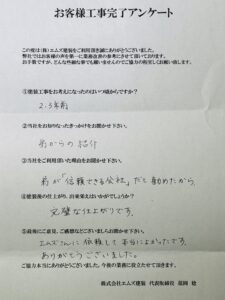 お客様工事完了アンケート
この度は（株）エムズ塗装をご利用頂き誠にありがとうございました。
弊社ではお客様の声を第一に業務改善の参考にさせて頂いております。
お手数ですが、どんな些細な事でも構いませんのでご協力の程宜しくお願い致します。
①塗装工事をお考えになったのはいつ頃からですか？
2.3年前
②当社をお知りなったきっかけをお聞かせ下さい。
弟からの紹介
③当社をご利用頂いた理由をお聞かせ下さい。
弟が「信頼できる会社」だと勧めたから。
④塗装後の仕上がり、出来栄えはいかがでしょうか？
完璧な仕上がりです。
⑤最後にご意見、ご感想などございましたらお聞かせ下さい。
エムズさんに依頼して本当によかったです。
ありがとうございました。
ご協力本当にありがとうございました。今後の業務に役立たせて頂きます。
株式会社エムズ塗装 代表取締役